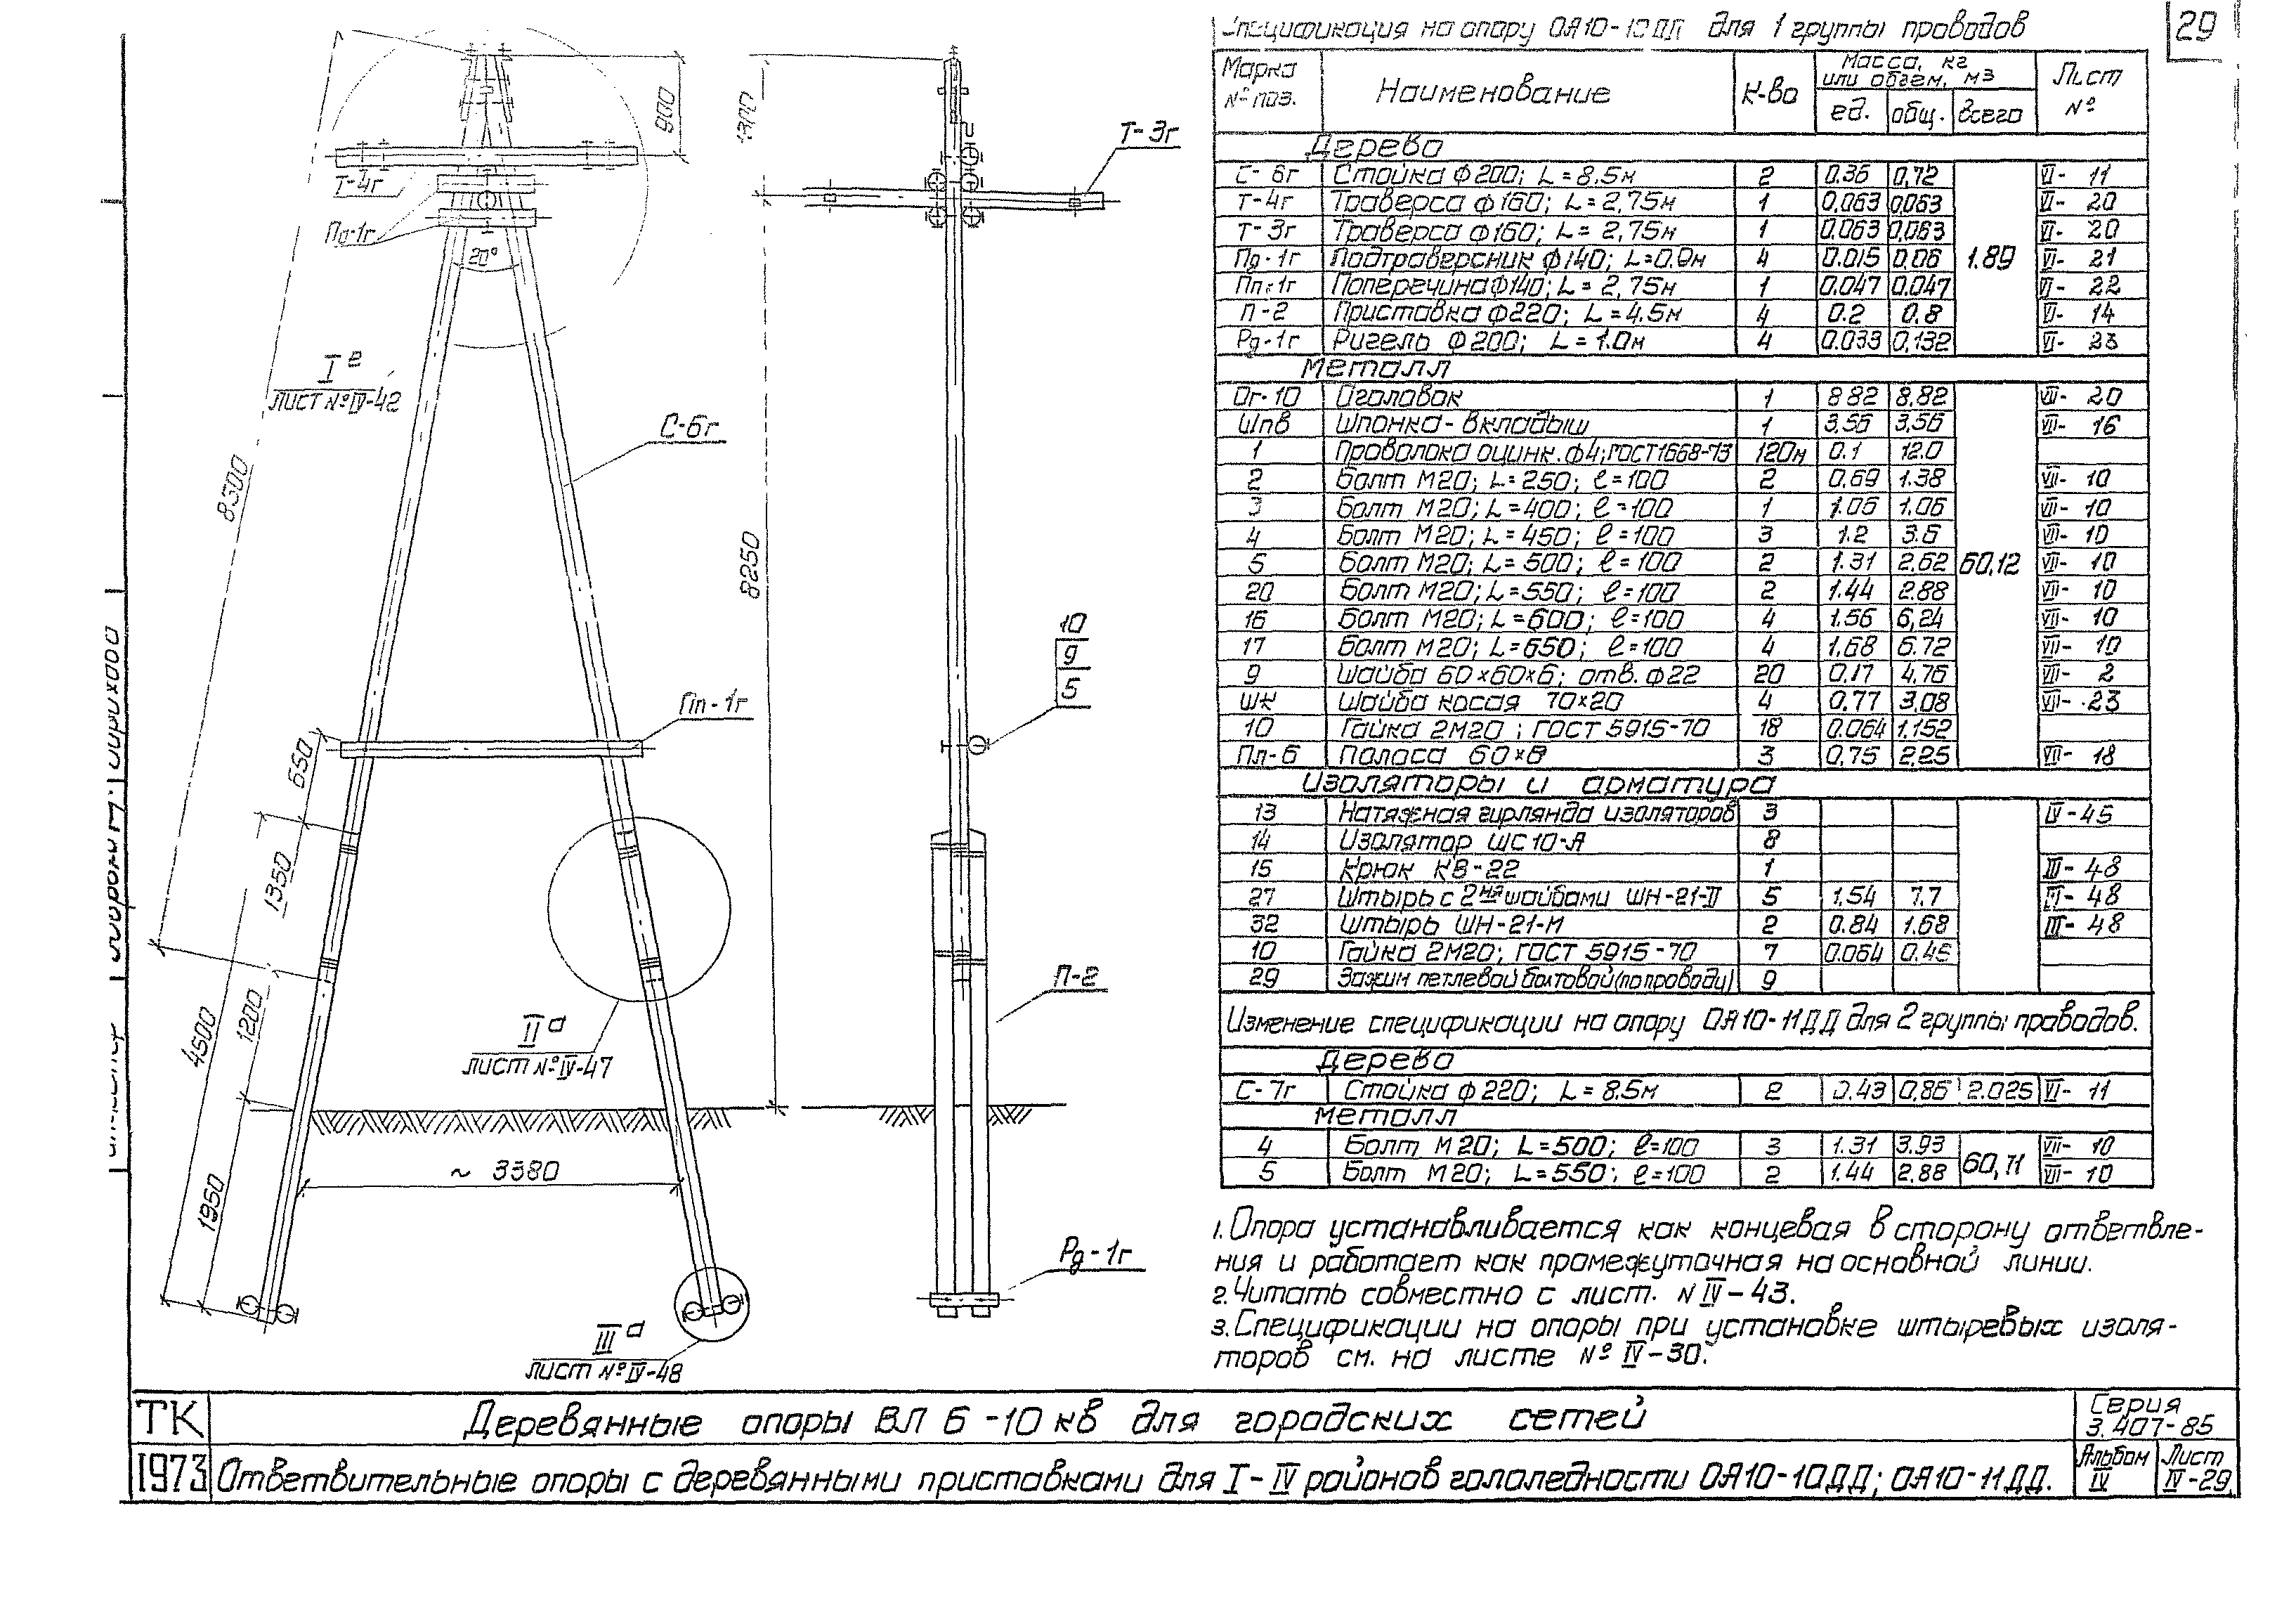 29
900
1300
Т-3г
Т-4г
Пд-1г
20°
I г
ЛИСТ №IV-42
С-6г
8500
8250
10
9
5
Пп-1г
650
1350
1200
4500
1950
П-2
II а
ЛИСТ №IV-47
~ 3380
Рд-1г
III а
ЛИСТ №IV-48
Спецификация на опору ОА10-10ДД для 1 группы проводов
Марка № поз. Наименование К-во Масса, кг или объем, м3 Лист №
ед. общ. всего
Дерево
С-6г Стойка ф200; L=8.5м 2 0.36 0,72 VI- 11
Т-4г Траверса ф160; L=2,75м 1 0,063 0,063 VI- 20
Т-3г Траверса ф160; L=2,75м 1 0,063 0,063 VI- 20
Пд-1г Подтраверсник ф140; L=0.9м 4 0.015 0,06 1.89 VI- 21
Пп-1г Поперечина ф140; L=2,75м 1 0.047 0.047 VI- 22
П-2 Приставка ф220; L=4.5м 4 0.2 0.8 VI- 14
Рд-1г Ригель ф200; L=1.0м 4 0.033 0,132 VI- 23
Металл
Ог-10 Оголовок 1 8.82 8,82 VII- 20
Шпв Шпонка-вкладыш 1 3,56 3,56 VII- 16
1 Проволока оцинк. ф4; ГОСТ1668-73 120м 0.1 12.0
2 Болт М20; L=250; ℓ=100 2 0,69 1.38 VII- 10
3 Болт М20; L=400; ℓ=100 1 1.06 1,06 VII- 10
4 Болт М20; L=450; ℓ=100 3 1.2 3.6 VII- 10
5 Болт М20; L=500; ℓ=100 2 1.31 2,62 60,12 VII- 10
20 Болт М20; L=550; ℓ=100 2 1.44 2.88 VII- 10
16 Болт М20; L=600; ℓ=100 4 1.56 6,24 VII- 10
17 Болт М20; L=650; ℓ=100 4 1,68 6.72 VII- 10
9 Шайба 60×60×6; отв. ф22 20 0,17 4,76 VII- 2
ШК Шайба косая 70×20 4 0,77 3,08 VII- 23
10 Гайка 2М20; ГОСТ 5915-70 18 0.064 1,152
Пл-6 Полоса 60×8 3 0,75 2,25 VII- 18
Изоляторы и арматура
13 Натяжная гирлянда изоляторов 3 IV-45
14 Изолятор ШС10-А 8
15 Крюк КВ-22 1 III-48
27 Штырь с 2мя шайбами ШН-21-П 5 1,54 7.7 III-48
32 Штырь ШН-21-М 2 0.84 1.68 III-48
10 Гайка 2М20; ГОСТ 5915-70 7 0.064 0.45
29 Зажим петлевой болтовой (по проводу) 9
Изменение спецификации на опору ОА10-11ДД для 2 группы проводов.
Дерево
С-7г Стойка ф220; L=8.5м 2 0.43 0,86 2.025 VI- 11
Металл
4 Болт М20; L=500; ℓ=100 3 1.31 3.93 60,71 VII- 10
5 Болт М20; L=550; ℓ=100 2 1.44 2.88 VII- 10
1. Опора устанавливается как концевая в сторону ответвле-
ния и работает как промежуточная на основной линии.
2. Читать совместно с лист. № IV-43.
3. Спецификации на опоры при установке штыревых изоля-
торов см. на листе № IV-30.
ТК Деревянные опоры ВЛ 6-10 кв для городских сетей Серия 3.407-85
1973 Ответвительные опоры с деревянными приставками для I-IV районов гололедности ОА10-10ДД; ОА10-11ДД. Альбом IV Лист IV-29